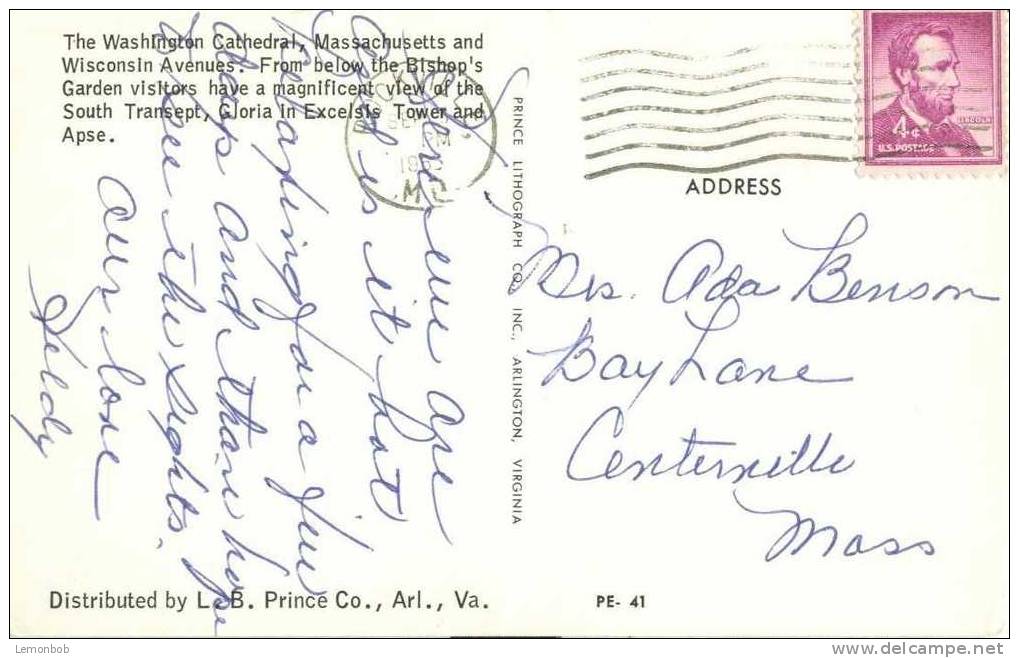 The Washington Cathedral, Massachusetts and
Wisconsin Avenues. From below the Bishop's
Garden visitors have a magnificent view of the
South Transept, Gloria in Excelsis Tower and
Apse.
Here we are
is it hot
for a few
days and than hope
to see the sights.
Our love
Distributed by L. B. Prince Co., Arl., Va.
PRINCE LITHOGRAPH CO., INC., ARLINGTON, VIRGINIA
MD.
LINCOLN
4¢
U.S. POSTAGE
ADDRESS
Mrs. Ada Benson
Bay Lane
Centerville
Mass
PE- 41
Lemonbob
delcampe.net